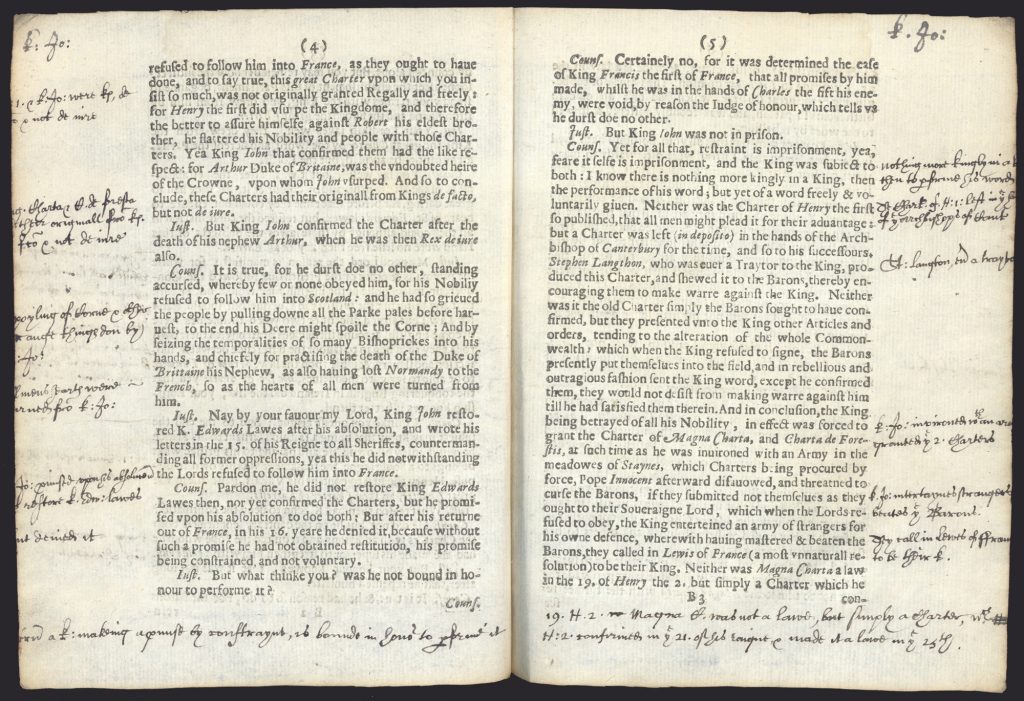 k: Jo:
(4)
refused to follow him into France, as they ought to haue
done, and to say true, this great Charter vpon which you in-
sist so much, was not originally granted Regally and freely:
for Henry the first did vsurpe the Kingdome, and therefore
the better to assure himselfe against Robert his eldest bro-
ther, he flattered his Nobility and people with those Char-
ters. Yea King Iohn that confirmed them had the like re-
spect: for Arthur Duke of Britaine, was the vndoubted heire
of the Crowne, vpon whom John vsurped. And so to con-
clude, these Charters had their originall from Kings de facto,
but not de iure.
Iust. But King Iohn confirmed the Charter after the
death of his nephew Arthur, when he was then Rex de iure
also.
Couns. It is true, for he durst doe no other, standing
accursed, whereby few or none obeyed him, for his Nobiliy
refused to follow him into Scotland: and he had so grieued
the people by pulling downe all the Parke pales before har-
uest, to the end his Deere might spoile the Corne; And by
seizing the temporalities of so many Bishoprickes into his
hands, and chiefely for practising the death of the Duke of
Brittaine his Nephew, as also hauing lost Normandy to the
French, so as the hearts of all men were turned from
him.
Iust. Nay by your fauour my Lord, King John resto-
red K. Edwards Lawes after his absolution, and wrote his
letters in the 15. of his Reigne to all Sheriffes, counterman-
ding all former oppressions, yea this he did notwithstanding
the Lords refused to follow him into France.
Couns. Pardon me, he did not restore King Edwards
Lawes then, nor yet confirmed the Charters, but he promi-
sed vpon his absolution to doe both: But after his returne
out of France, in his 16. yeare he denied it, because without
such a promise he had not obtained restitution, his promise
being constrained, and not voluntary.
Iust. But what thinke you? was he not bound in ho-
nour to performe it?
Couns.
a k: making a by constraynt, is bounde in to it
k. Jo:
(5)
Couns. Certainely no, for it was determined the case
of King Francis the first of France, that all promises by him
made, whilst he was in the hands of Charles the fift his ene-
my, were void, by reason the Iudge of honour, which tells vs
he durst doe no other.
Just. But King Iohn was not in prison.
Couns. Yet for all that, restraint is imprisonment, yea,
feare it selfe is imprisonment, and the King was subiect to
both: I know there is nothing more kingly in a King, then
the performance of his word; but yet of a word freely & vo-
luntarily giuen. Neither was the Charter of Henry the first
so published, that all men might plead it for their aduantage:
but a Charter was left (in deposito) in the hands of the Arch-
bishop of Canterbury for the time, and so to his successours.
Stephen Langthon, who was euer a Traytor to the King, pro-
duced this Charter, and shewed it to the Barons, thereby en-
couraging them to make warre against the King. Neither
was it the old Charter simply the Barons sought to haue con-
firmed, but they presented vnto the King other Articles and
orders, tending to the alteration of the whole Common-
wealth: which when the King refused to signe, the Barons
presently put themselues into the field, and in rebellious and
outragious fashion sent the King word, except he confirmed
them, they would not desist from making warre against him
till he had satisfied them therein. And in conclusion, the King
being betrayed of all his Nobility, in effect was forced to
grant the Charter of Magna Charta, and Charta de Fore-
stis, at such time as he was inuironed with an Army in the
meadowes of Staynes, which Charters being procured by
force, Pope Innocent afterward disauowed, and threatned to
curse the Barons, if they submitted not themselues as they
ought to their Soueraigne Lord, which when the Lords re-
fused to obey, the King enterteined an army of strangers for
his owne defence, wherewith hauing mastered & beaten the
Barons, they called in Lewis of France (a most vnnaturall re-
solution) to be their King. Neither was Magna Charta a law
in the 19. of Henry the 2. but simply a Charter which he
B3
con-
nothing more kingly in a
k. Jo:
2. charters
k. Jo: intertaynes strangers
Barons.
call in Lewis of
to be their k.
19. H. 2. Magna was not a lawe, but simply a charter,
H: 2. confirmed in 21. of his & made it a lawe in 25th.